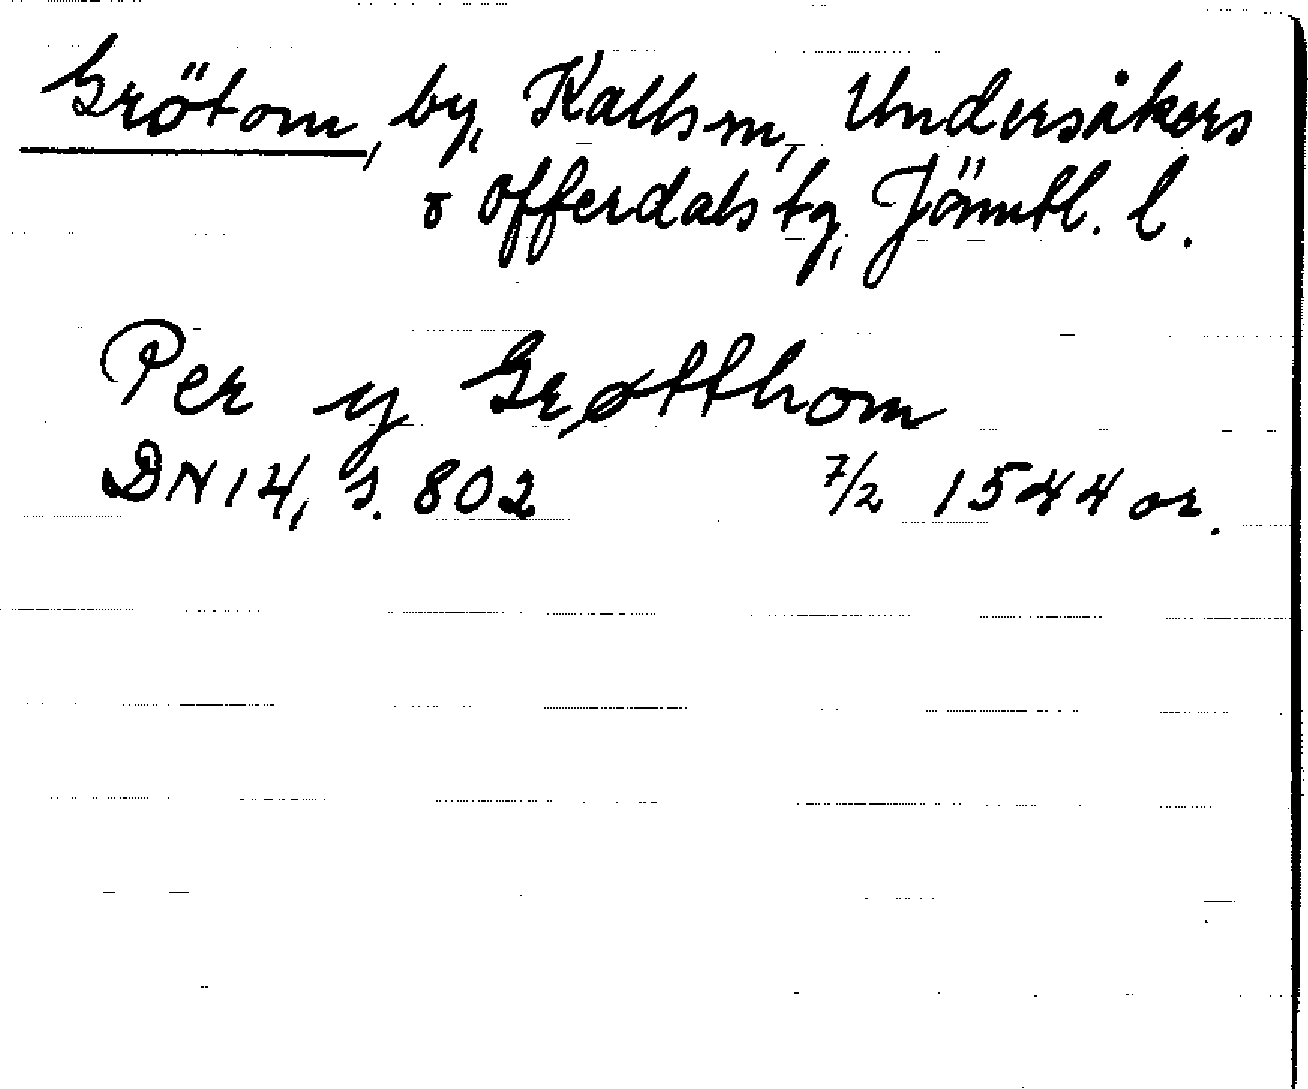 Grötom, by, Kalls sn, Undersåkers
o Offerdals tg, Jämtl. l.
Per y Grøtthom
DN 14, s. 802 7/2 1544 or.